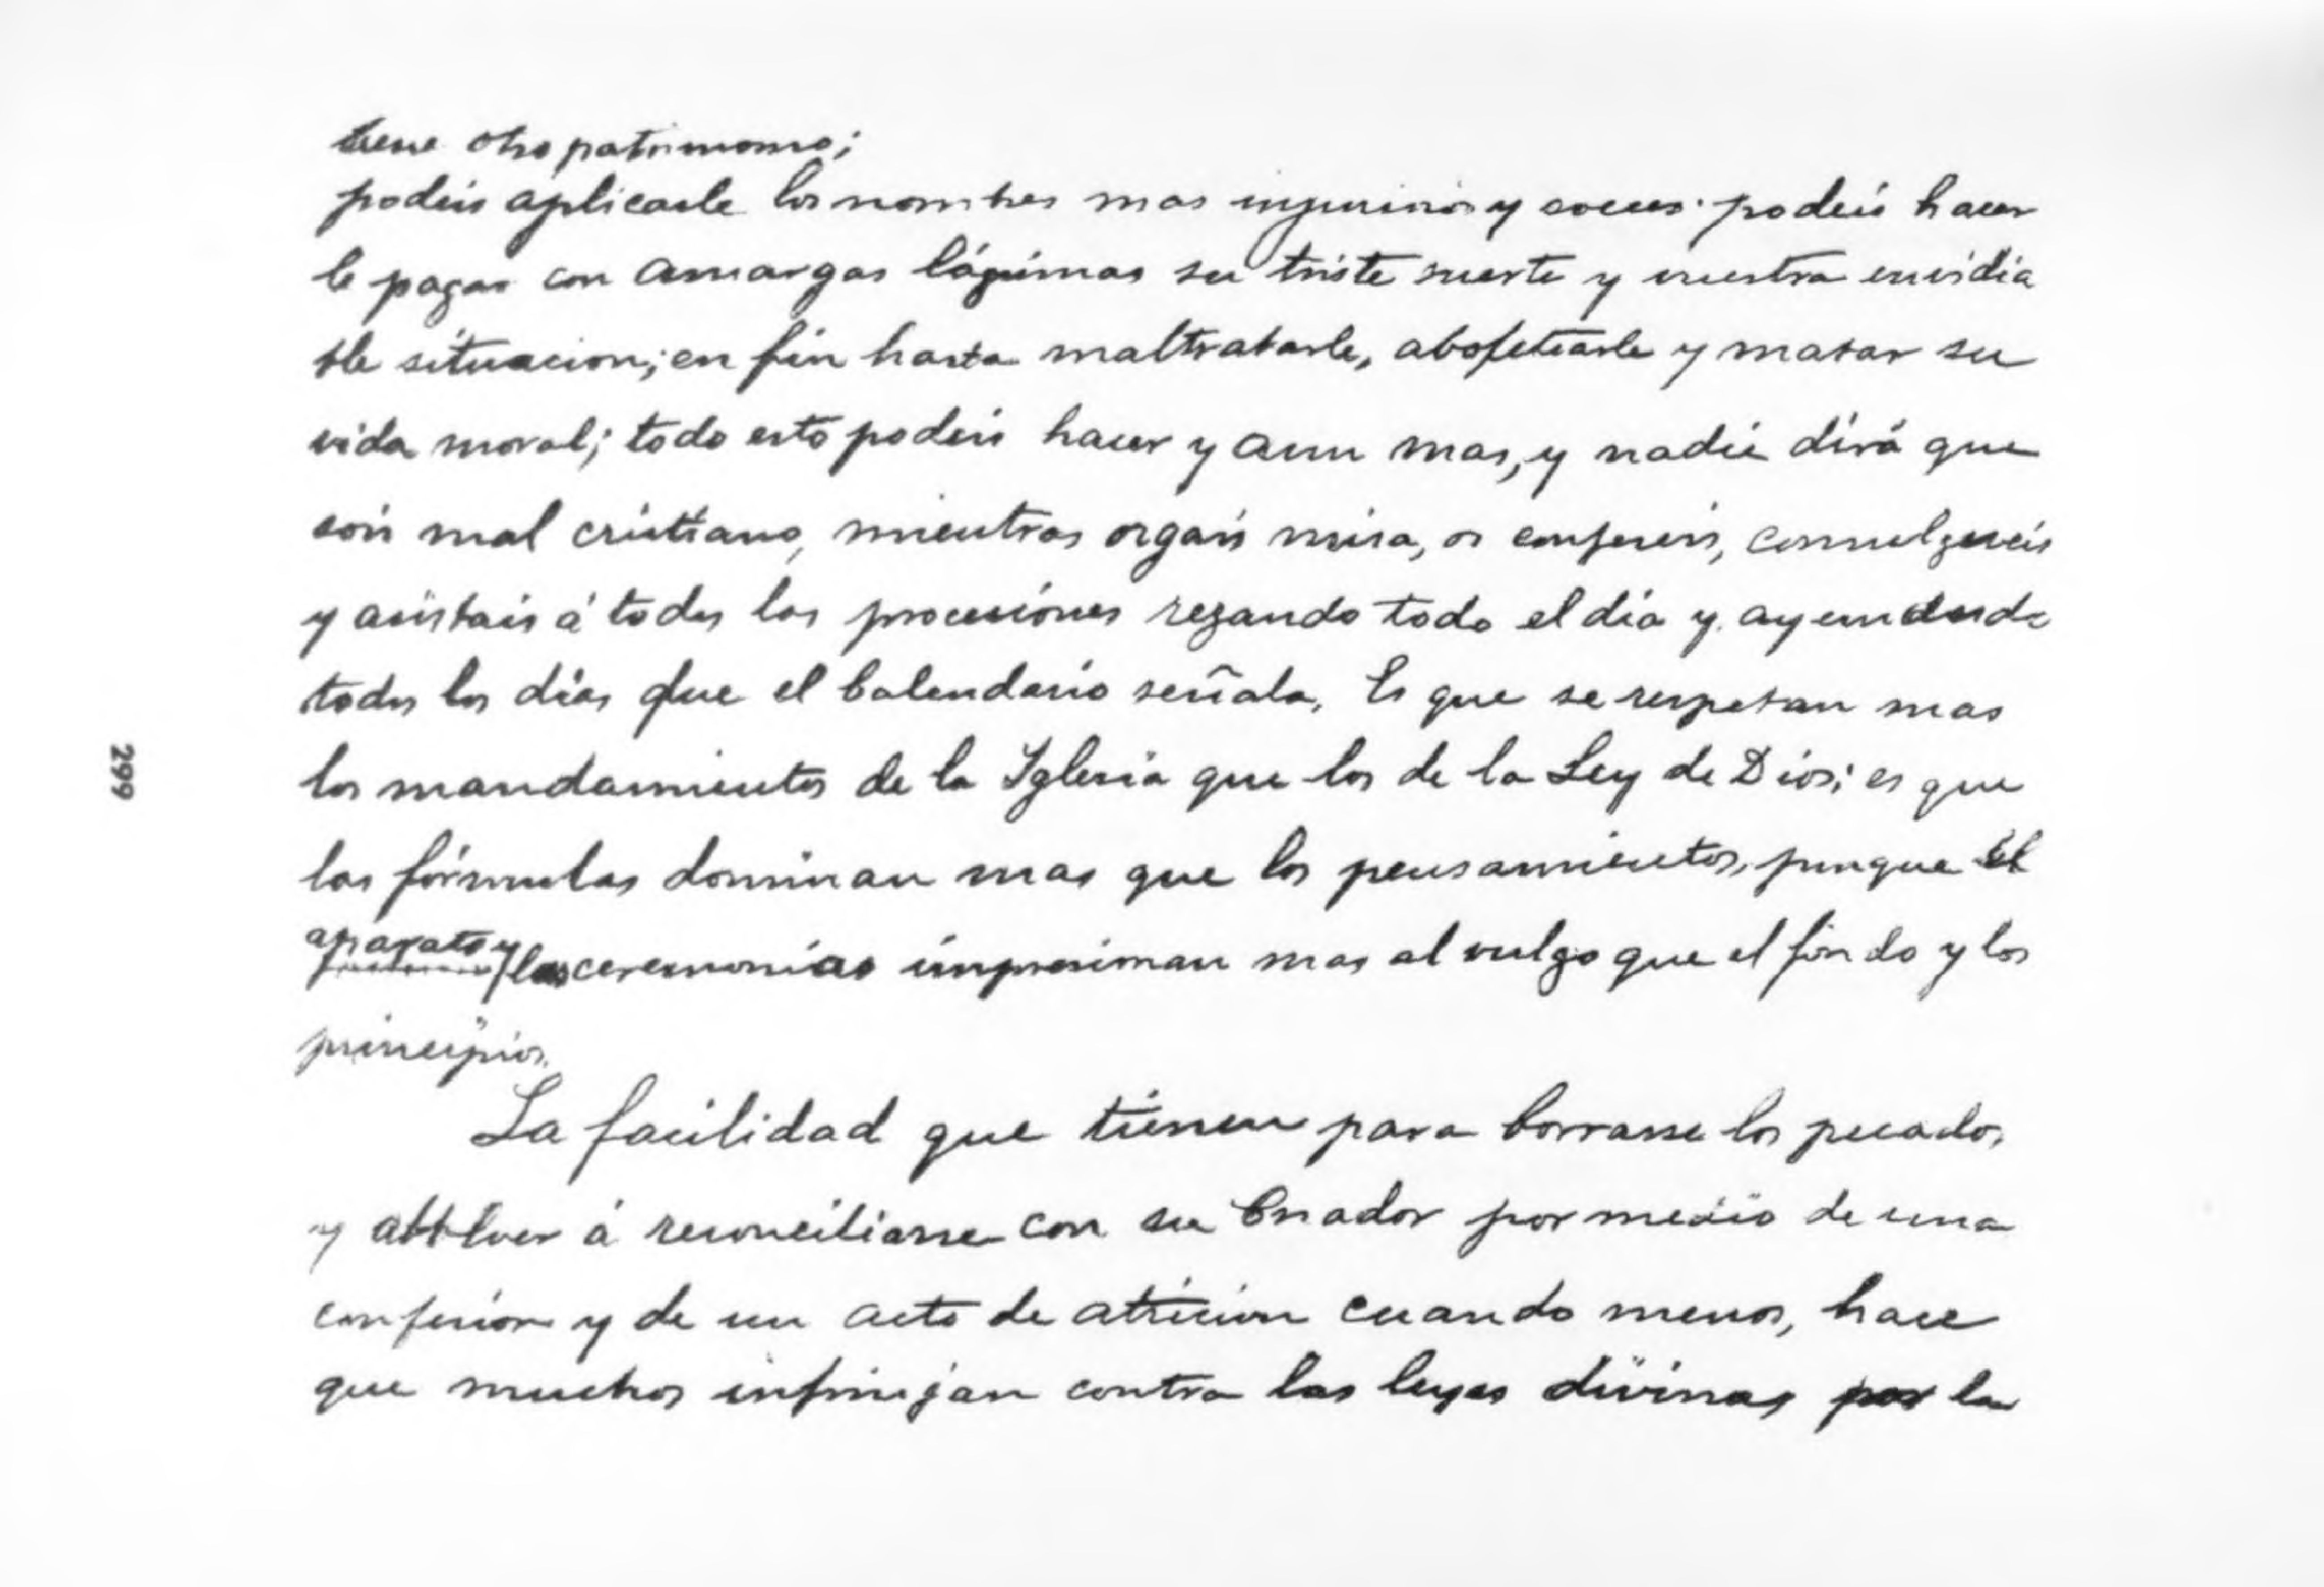 tiene otro patrimonio;
podeis aplicarle los nombres mas injuriosos y soeces: podeis hacer
le pagar con amargas lágrimas su triste suerte y vuestra envidia
ble situacion; en fin hasta maltratarle, abofetearle y matar su
vida moral; todo esto podeis hacer y aun mas, y nadie dirá que
sois mal cristiano, mientras orgais misa, os confeseis, comulgueis
y asistais á todas las procesiones rezando todo el dia y ayunando
todos los dias que el Calendario señala. Es que se respetan mas
los mandamientos de la Iglesia que los de la Ley de Dios; es que
las fórmulas dominan mas que los pensamientos, porque el
aparato y las ceremonias impresionan mas al vulgo que el fondo y los
principios.
La facilidad que tienen para borrarse los pecados,
y volver á reconciliarse con su Criador por medio de una
confesion y de un acto de atricion cuando menos, hace
que muchos infrinjan contra las leyes divinas por la
299